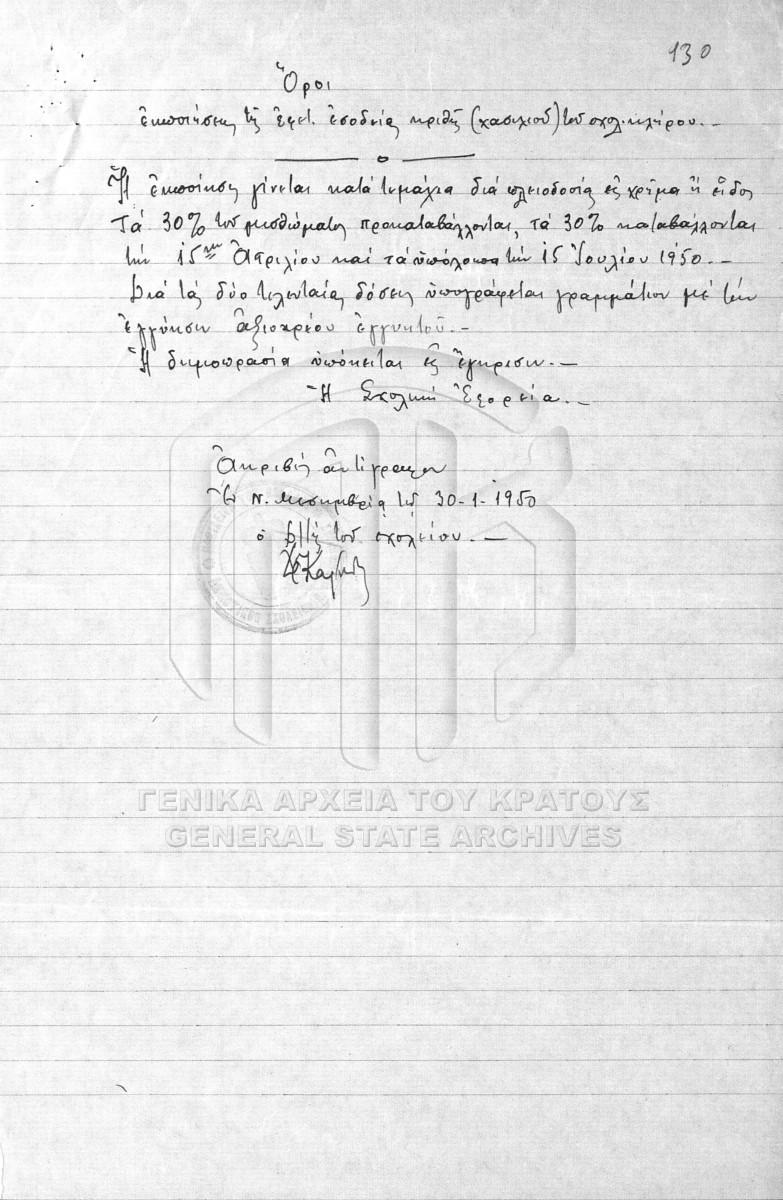 130
Ὅροι
ἐκποιήσεως τῆς ἐφετ. ἐσοδείας κριθῆς (χασιλιοῦ) τοῦ σχολ. κλήρου.—
Ἡ ἐκποίησις γίνεται κατὰ τεμάχια διὰ πλειοδοσίας εἰς χρῆμα ἢ εἶδος
Τὰ 30% τοῦ μισθώματος προκαταβάλλονται, τὰ 30% καταβάλλονται
τὴν 15ην Ἀπριλίου καὶ τὰ ὑπόλοιπα τὴν 15 Ἰουλίου 1950.—
Διὰ τὰς δύο τελευταίας δόσεις ὑπογράφεται γραμμάτιον μὲ τὴν
ἐγγύησιν ἀξιοχρέου ἐγγυητοῦ.—
Ἡ δημοπρασία ὑπόκειται εἰς ἔγκρισιν.—
Ἡ Σχολικὴ Ἐφορεία.—
Ἀκριβὲς ἀντίγραφον
Ἐν Ν. Μεσημβρίᾳ τῇ 30-1-1950
ὁ Δ/τὴς τοῦ σχολείου.—
ΓΕΝΙΚΑ ΑΡΧΕΙΑ ΤΟΥ ΚΡΑΤΟΥΣ
GENERAL STATE ARCHIVES